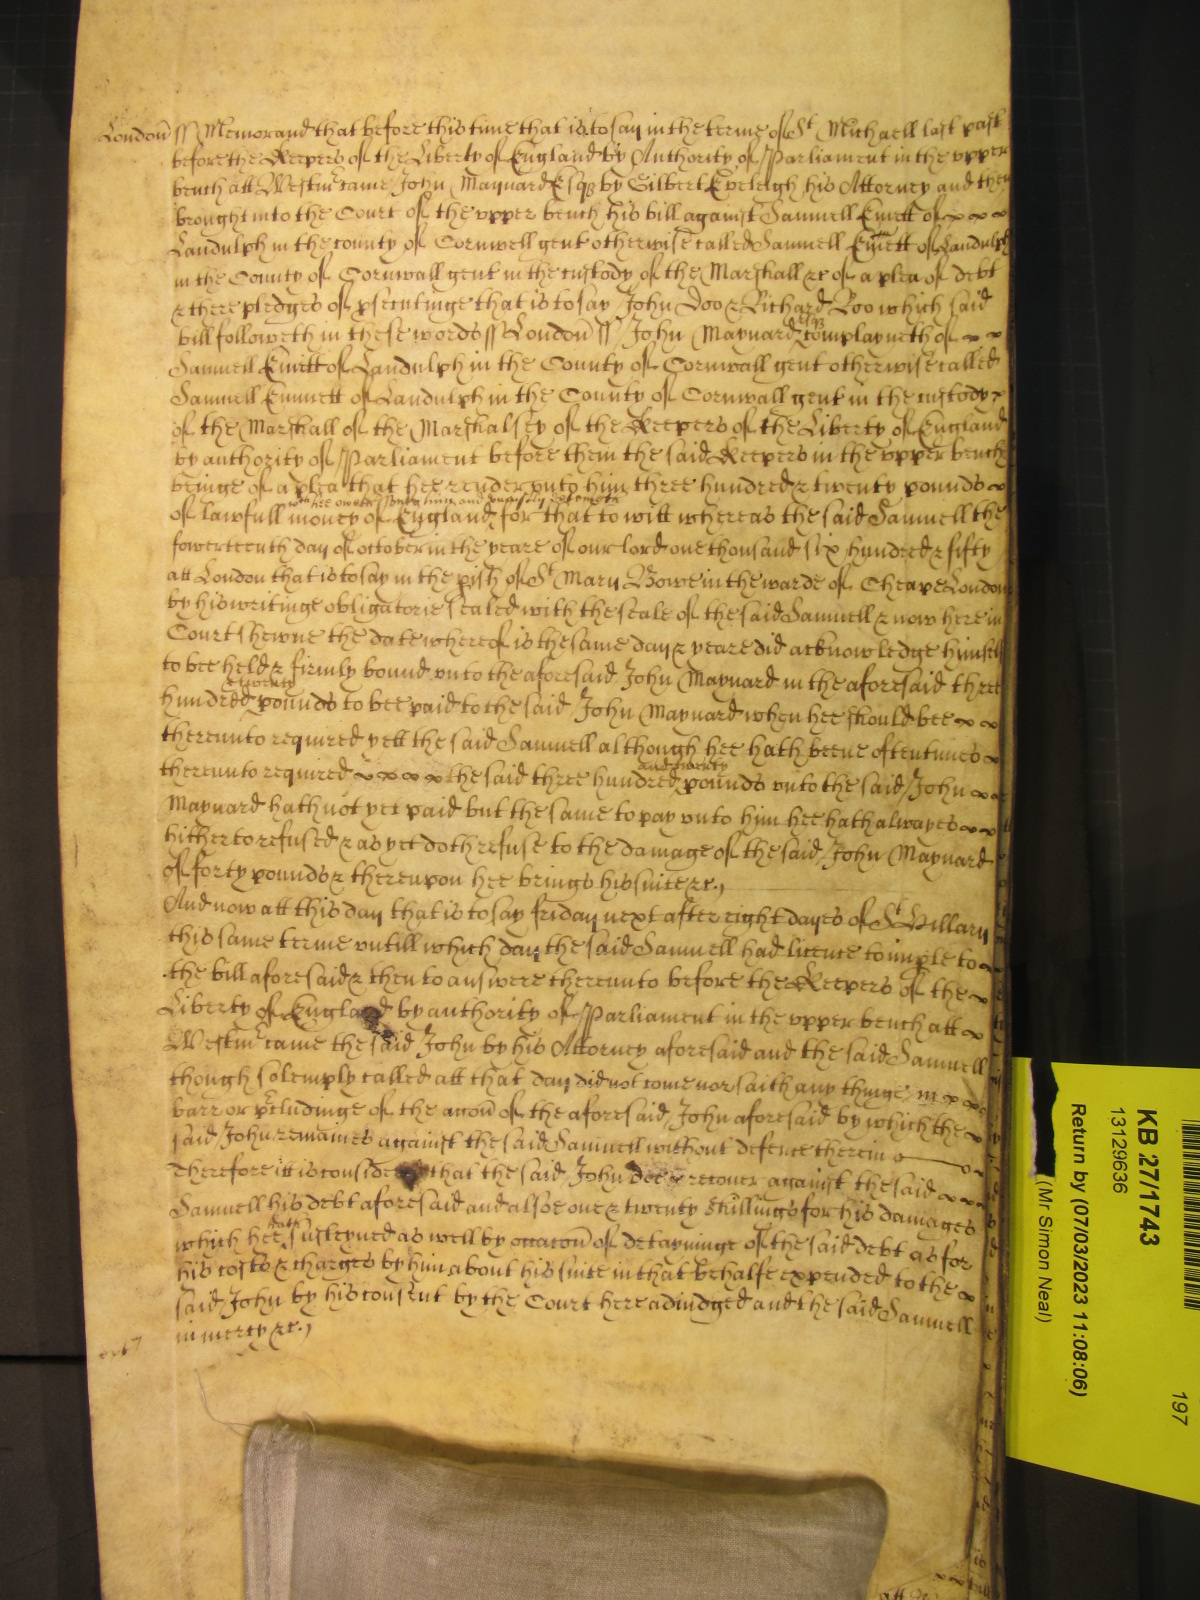 London ss Memorand that before this time that is to say in the terme of St Michaell last past
before the Keepers of the Liberty of England by Authority of Parliament in the upper
bench att Westmr came John Maynard Esqr by Gilbert Eveleigh his Attorney and then
brought into the Court of the upper bench his bill against Samuell Emett of
Landulph in the county of Cornwell gent otherwise called Samuell Emett of Landulph
in the County of Cornwall gent in the custody of the Marshall &c of a plea of debt
& there pledges of psecutinge that is to say John Doo & Richard Roo which said
bill followeth in these words ss London ss John Maynard esqr complayneth of
Samuell Emett of Landulph in the County of Cornwall gent otherwise called
Samuell Emmett of Landulph in the County of Cornwall gent in the custody
of the Marshall of the Marshalsey of the Keepers of the Liberty of England
by authority of Parliament before them the said Keepers in the upper bench
beinge of a plea that hee render unto him three hundred & twenty pounds
wch hee oweth unto him and uniustly detaineth
of lawfull money of England for that to witt whereas the said Samuell the
fowerteenth day of october in the yeare of our lord one thousand six hundred & fifty
att London that is to say in the pish of St Mary Bowe in the warde of Cheape London
by his writinge obligatorie sealed with the seale of the said Samuell & now here in
Court shewne the date whereof is the same day & yeare did acknowledge himself
to bee held & firmly bound unto the aforesaid John Maynard in the aforesaid three
hundred & twenty pounds to bee paid to the said John Maynard when hee should bee
thereunto required yett the said Samuell although hee hath beene oftentimes
thereunto required the said three hundred and twenty pounds unto the said John
Maynard hath not yet paid but the same to pay unto him hee hath alwayes
hitherto refused & as yet doth refuse to the damage of the said John Maynard
of forty pounds & thereupon hee brings his suite &c.
And now att this day that is to say friday next after eight dayes of St Hillary
this same terme untill which day the said Samuell had licence to imple to
the bill aforesaid & then to answere thereunto before the Keepers of the
Liberty of England by authority of Parliament in the upper bench att
Westmr came the said John by his Attorney aforesaid and the said Samuell
though solemply called att that day did not come nor saith any thinge in
barr or pcludinge of the accon of the aforesaid John aforesaid by which the
said John remaines against the said Samuell without defence therein
Therefore itt is considered that the said John doe recover against the said
Samuell his debt aforesaid and alsoe one & twenty shillings for his damages
which hee hath susteyned as well by occacon of detayninge of the said debt as for
his costs & charges by him about his suite in that behalfe expended to the
said John by his consent by the Court here adiudged and the said Samuell
in mercy &c.
KB 27/1743
13129636
Return by (07/03/2023 11:08:06)
(Mr Simon Neal)
197